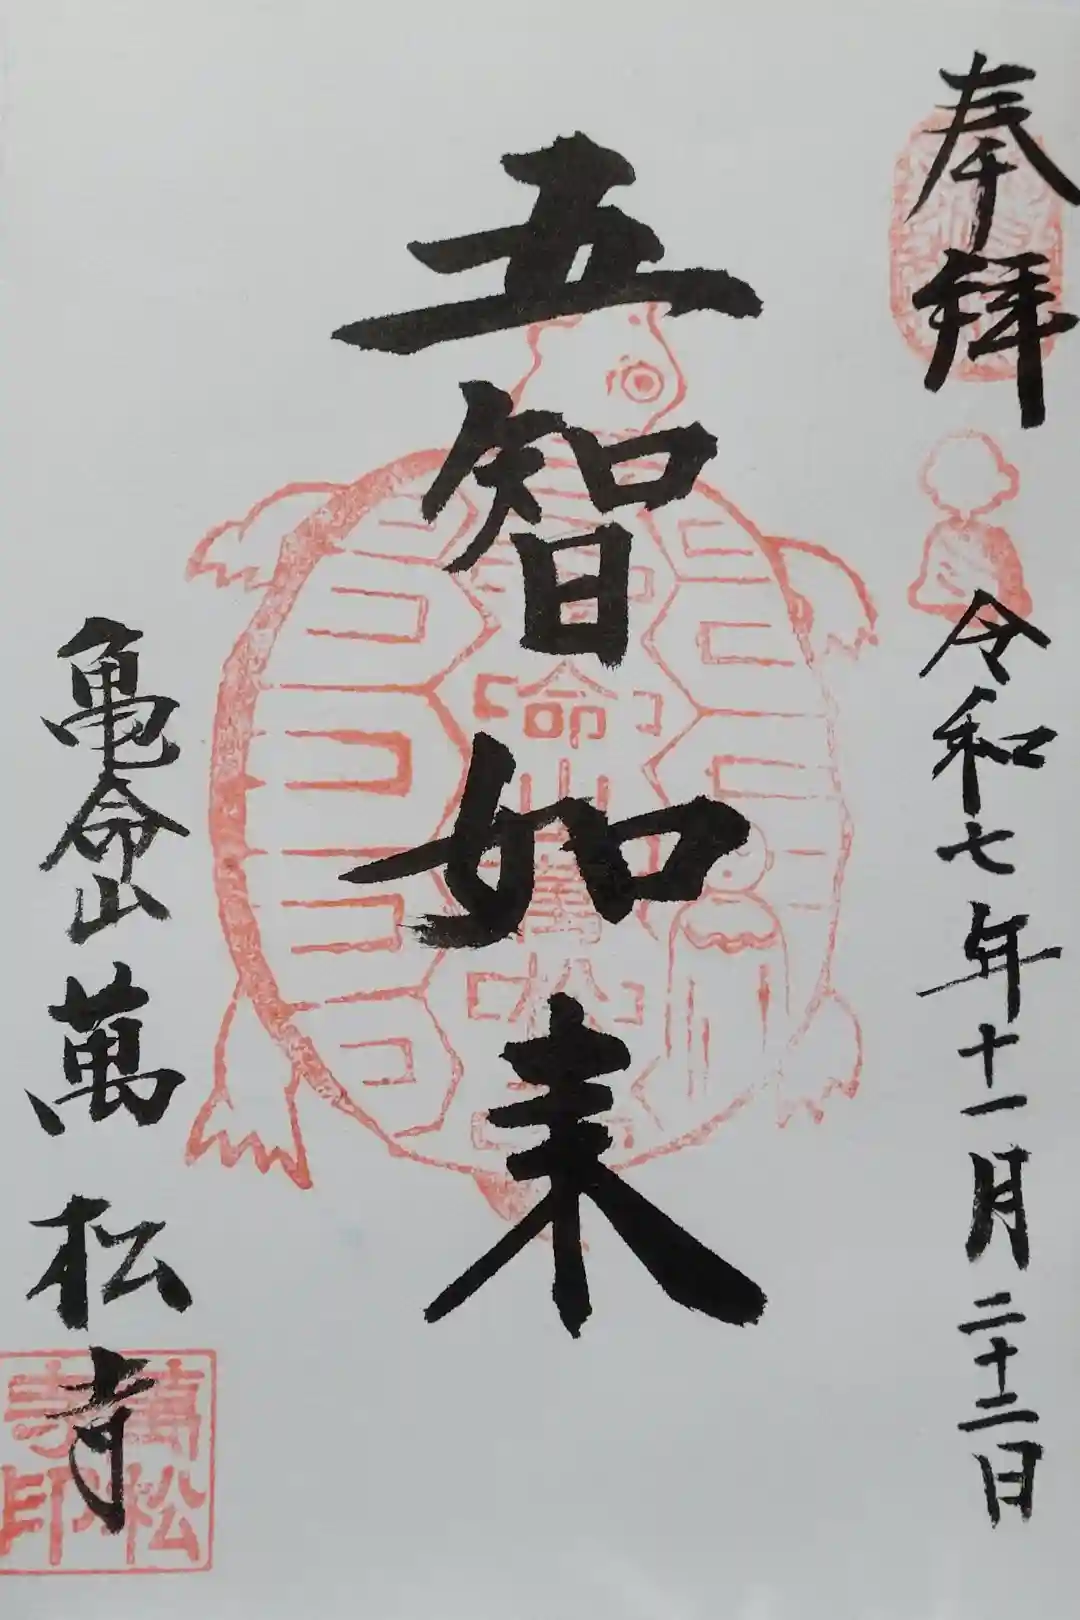 奉拝
令和七年十一月二十二日
五智如来
亀命山萬松寺
命山萬松
萬松寺印